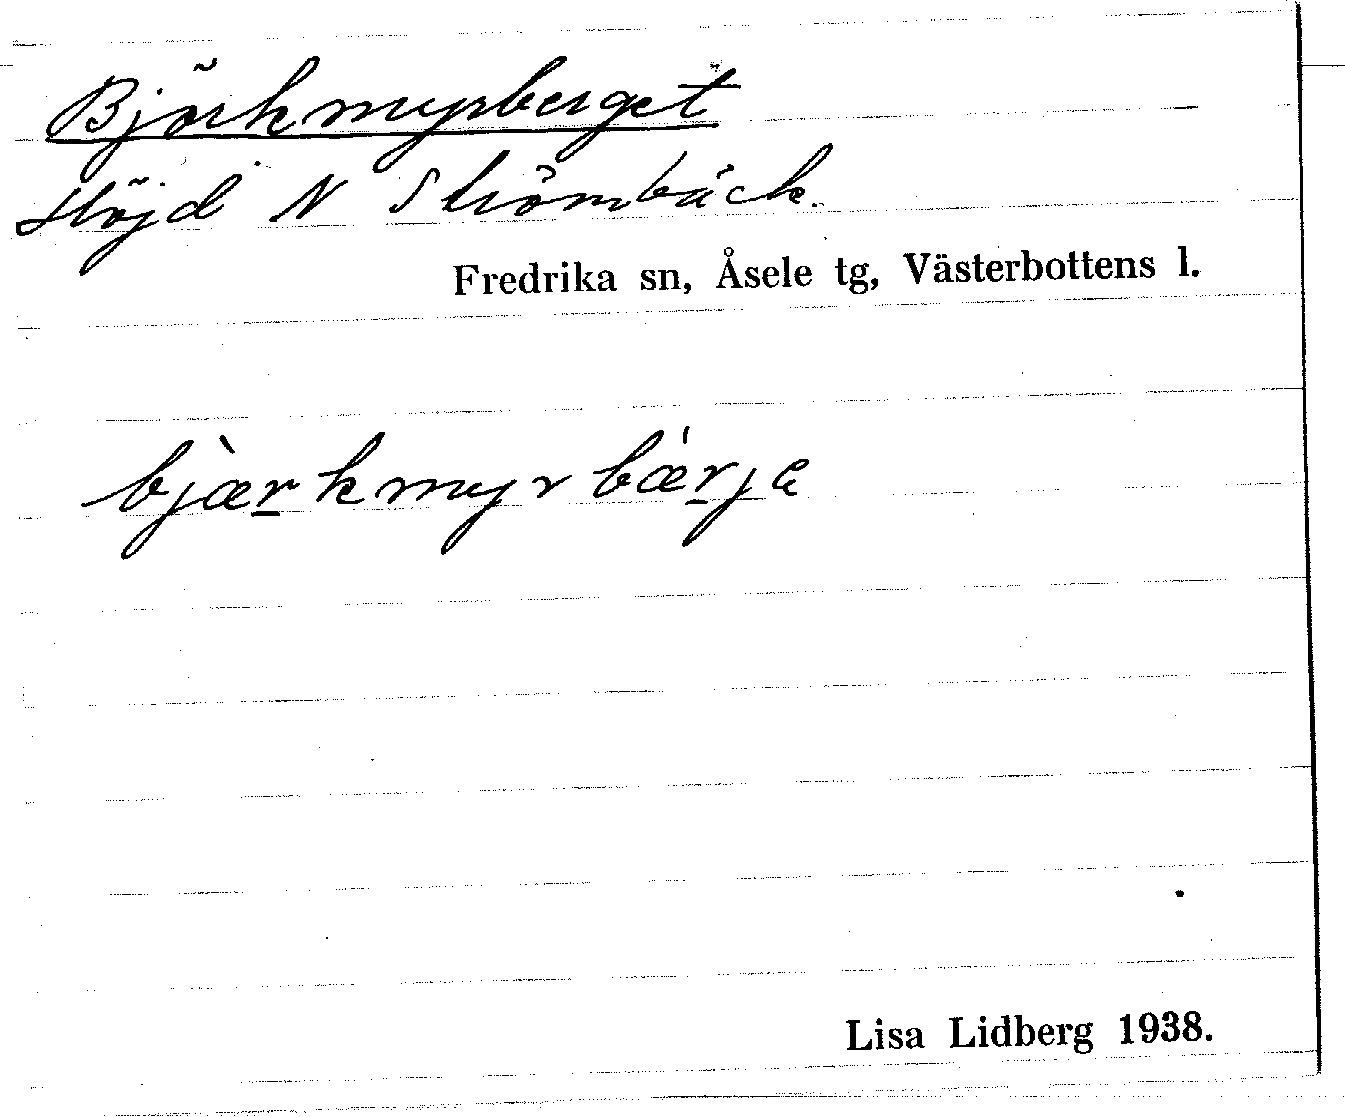 Björkmyrberget
Höjd N Strömbäck.
Fredrika sn, Åsele tg, Västerbottens l.
bjæ̀rkmyrbǽrje
Lisa Lidberg 1938.